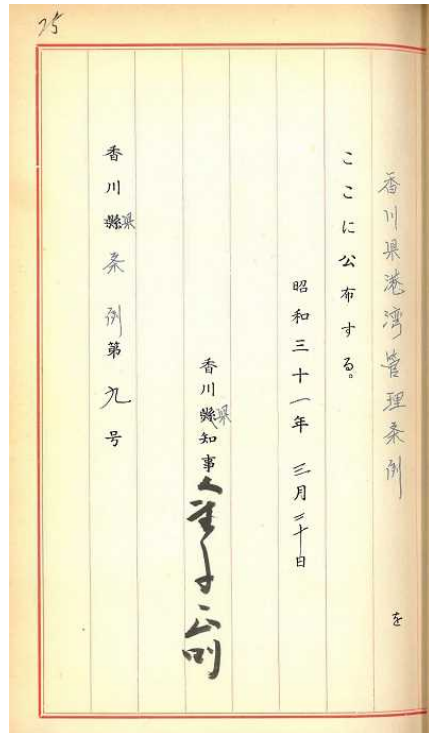 75
香川県港湾管理条例を
ここに公布する。
昭和三十一年三月二十日
香川県知事金子正則
香川県条例第九号